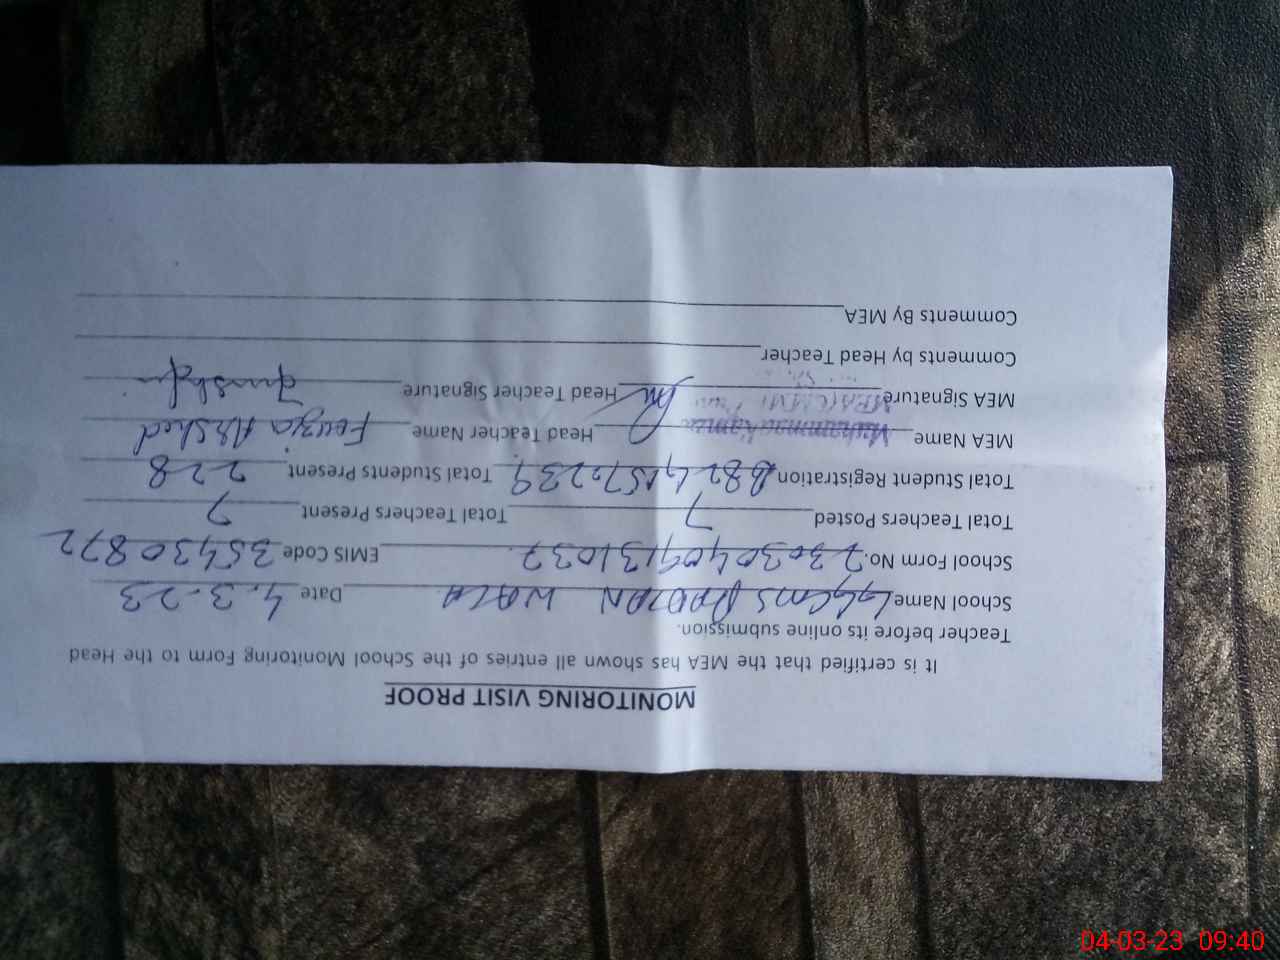 MONITORING VISIT PROOF
It is certified that the MEA has shown all entries of the School Monitoring Form to the Head
Teacher before its online submission.
School Name WALA Date 4.3.23
School Form No. EMIS Code 35430872
Total Teachers Posted 7 Total Teachers Present 7
Total Student Registration B82 G157=239 Total Students Present 228
MEA Name Muhammad Head Teacher Name Fouzia Arshed
MEA Signature Head Teacher Signature
Comments by Head Teacher
Comments By MEA
04-03-23 09:40